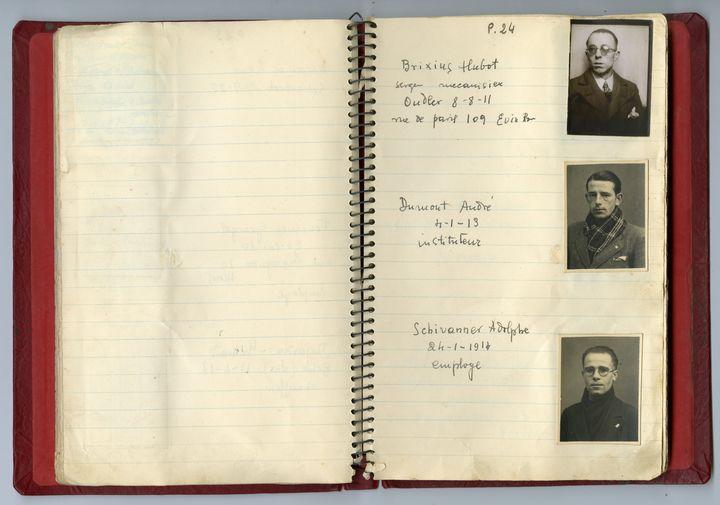 P.24
Brixius Hubot
serger mecanisiex
Oudler 8-8-11
rue de paris 109
Dumont André
4-1-13
instituteur
Schivanner Adolphe
24-1-1914
employe